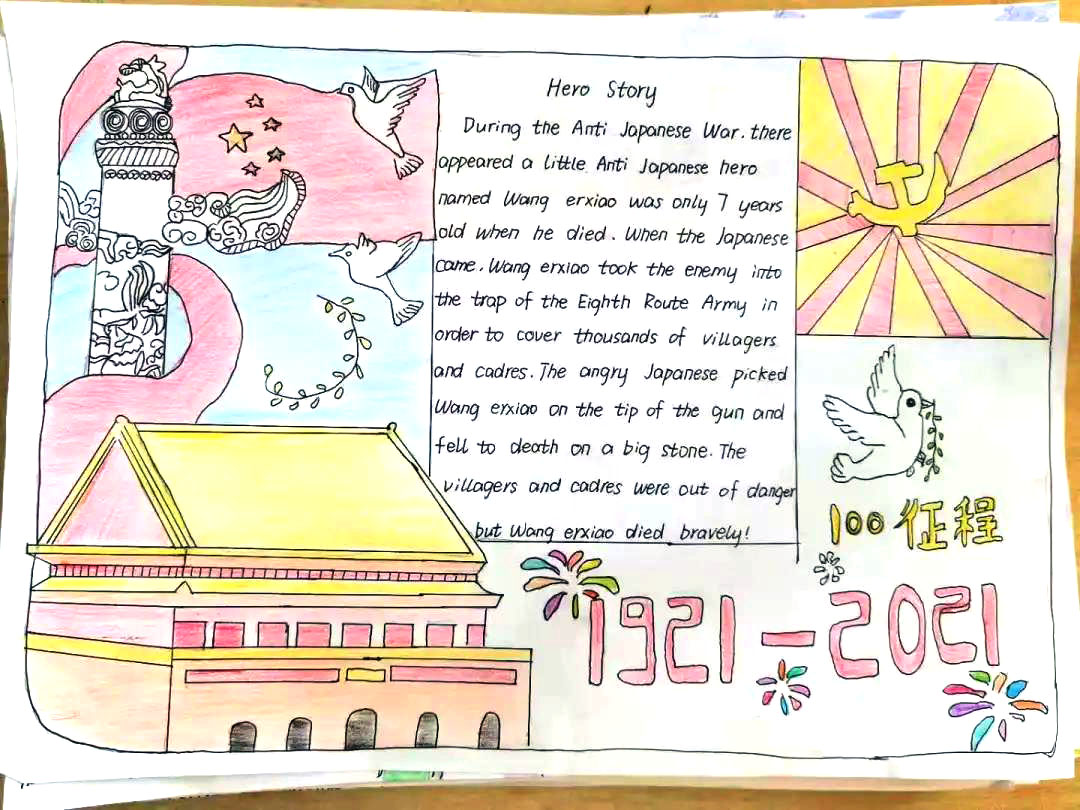 Hero Story
During the Anti Japanese War. there
appeared a little Anti Japanese hero
named Wang erxiao was only 7 years
old when he died. When the Japanese
came. Wang erxiao took the enemy into
the trap of the Eighth Route Army in
order to cover thousands of villagers
and cadres. The angry Japanese picked
Wang erxiao on the tip of the gun and
fell to death on a big stone. The
villagers and cadres were out of danger
but Wang erxiao died bravely!
100征程
1921-2021